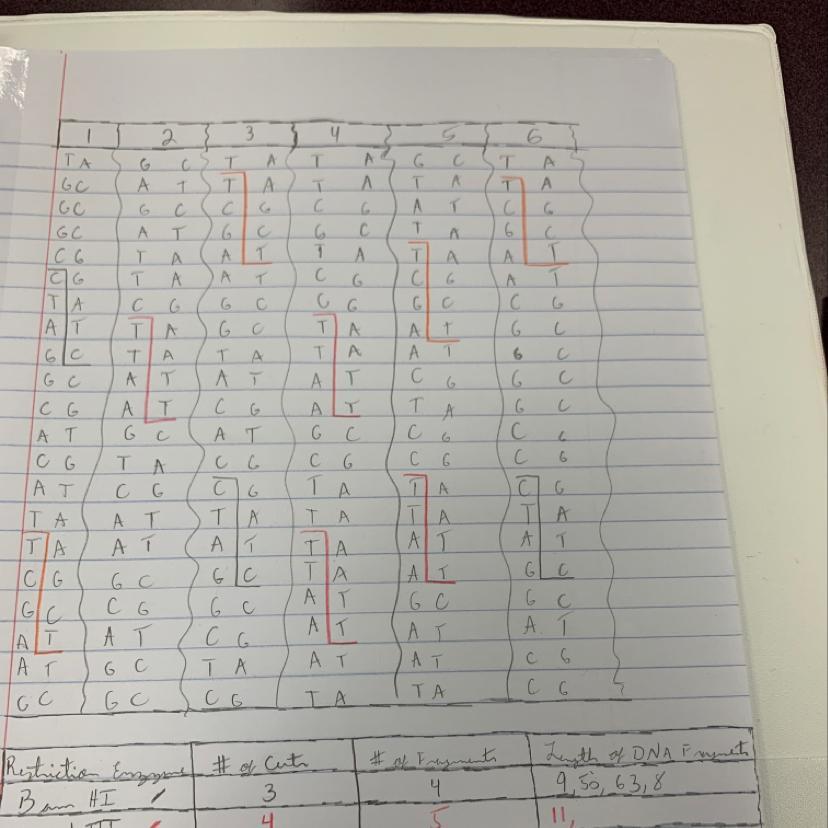 1 2 3 4 5 6
T A G C T A T A G C T A
G C A T T A T A T A T A
G C G C C G C G A T C G
G C A T G C G C T A G C
C G T A A T T A T A A T
C G T A A T C G C G A T
T A C G G C C G G C C G
A T T A G C T A A T G C
G C T A T A T A A T G C
G C A T A T A T C G G C
C G A T C G A T T A G C
A T G C A T G C C G C G
C G T A C G C G C G C G
A T C G C G T A T A C G
T A A T T A T A T A T A
T A A T A T T A A T A T
C G G C G C T A A T G C
G C C G G C A T G C G C
A T A T C G A T A T A T
A T G C T A A T A T C G
G C G C C G T A T A C G
Restriction Enzyme # of Cuts # of Fragments Length of DNA Fragments
Bam HI 3 4 9, 50, 63, 8
III 4 5 11,